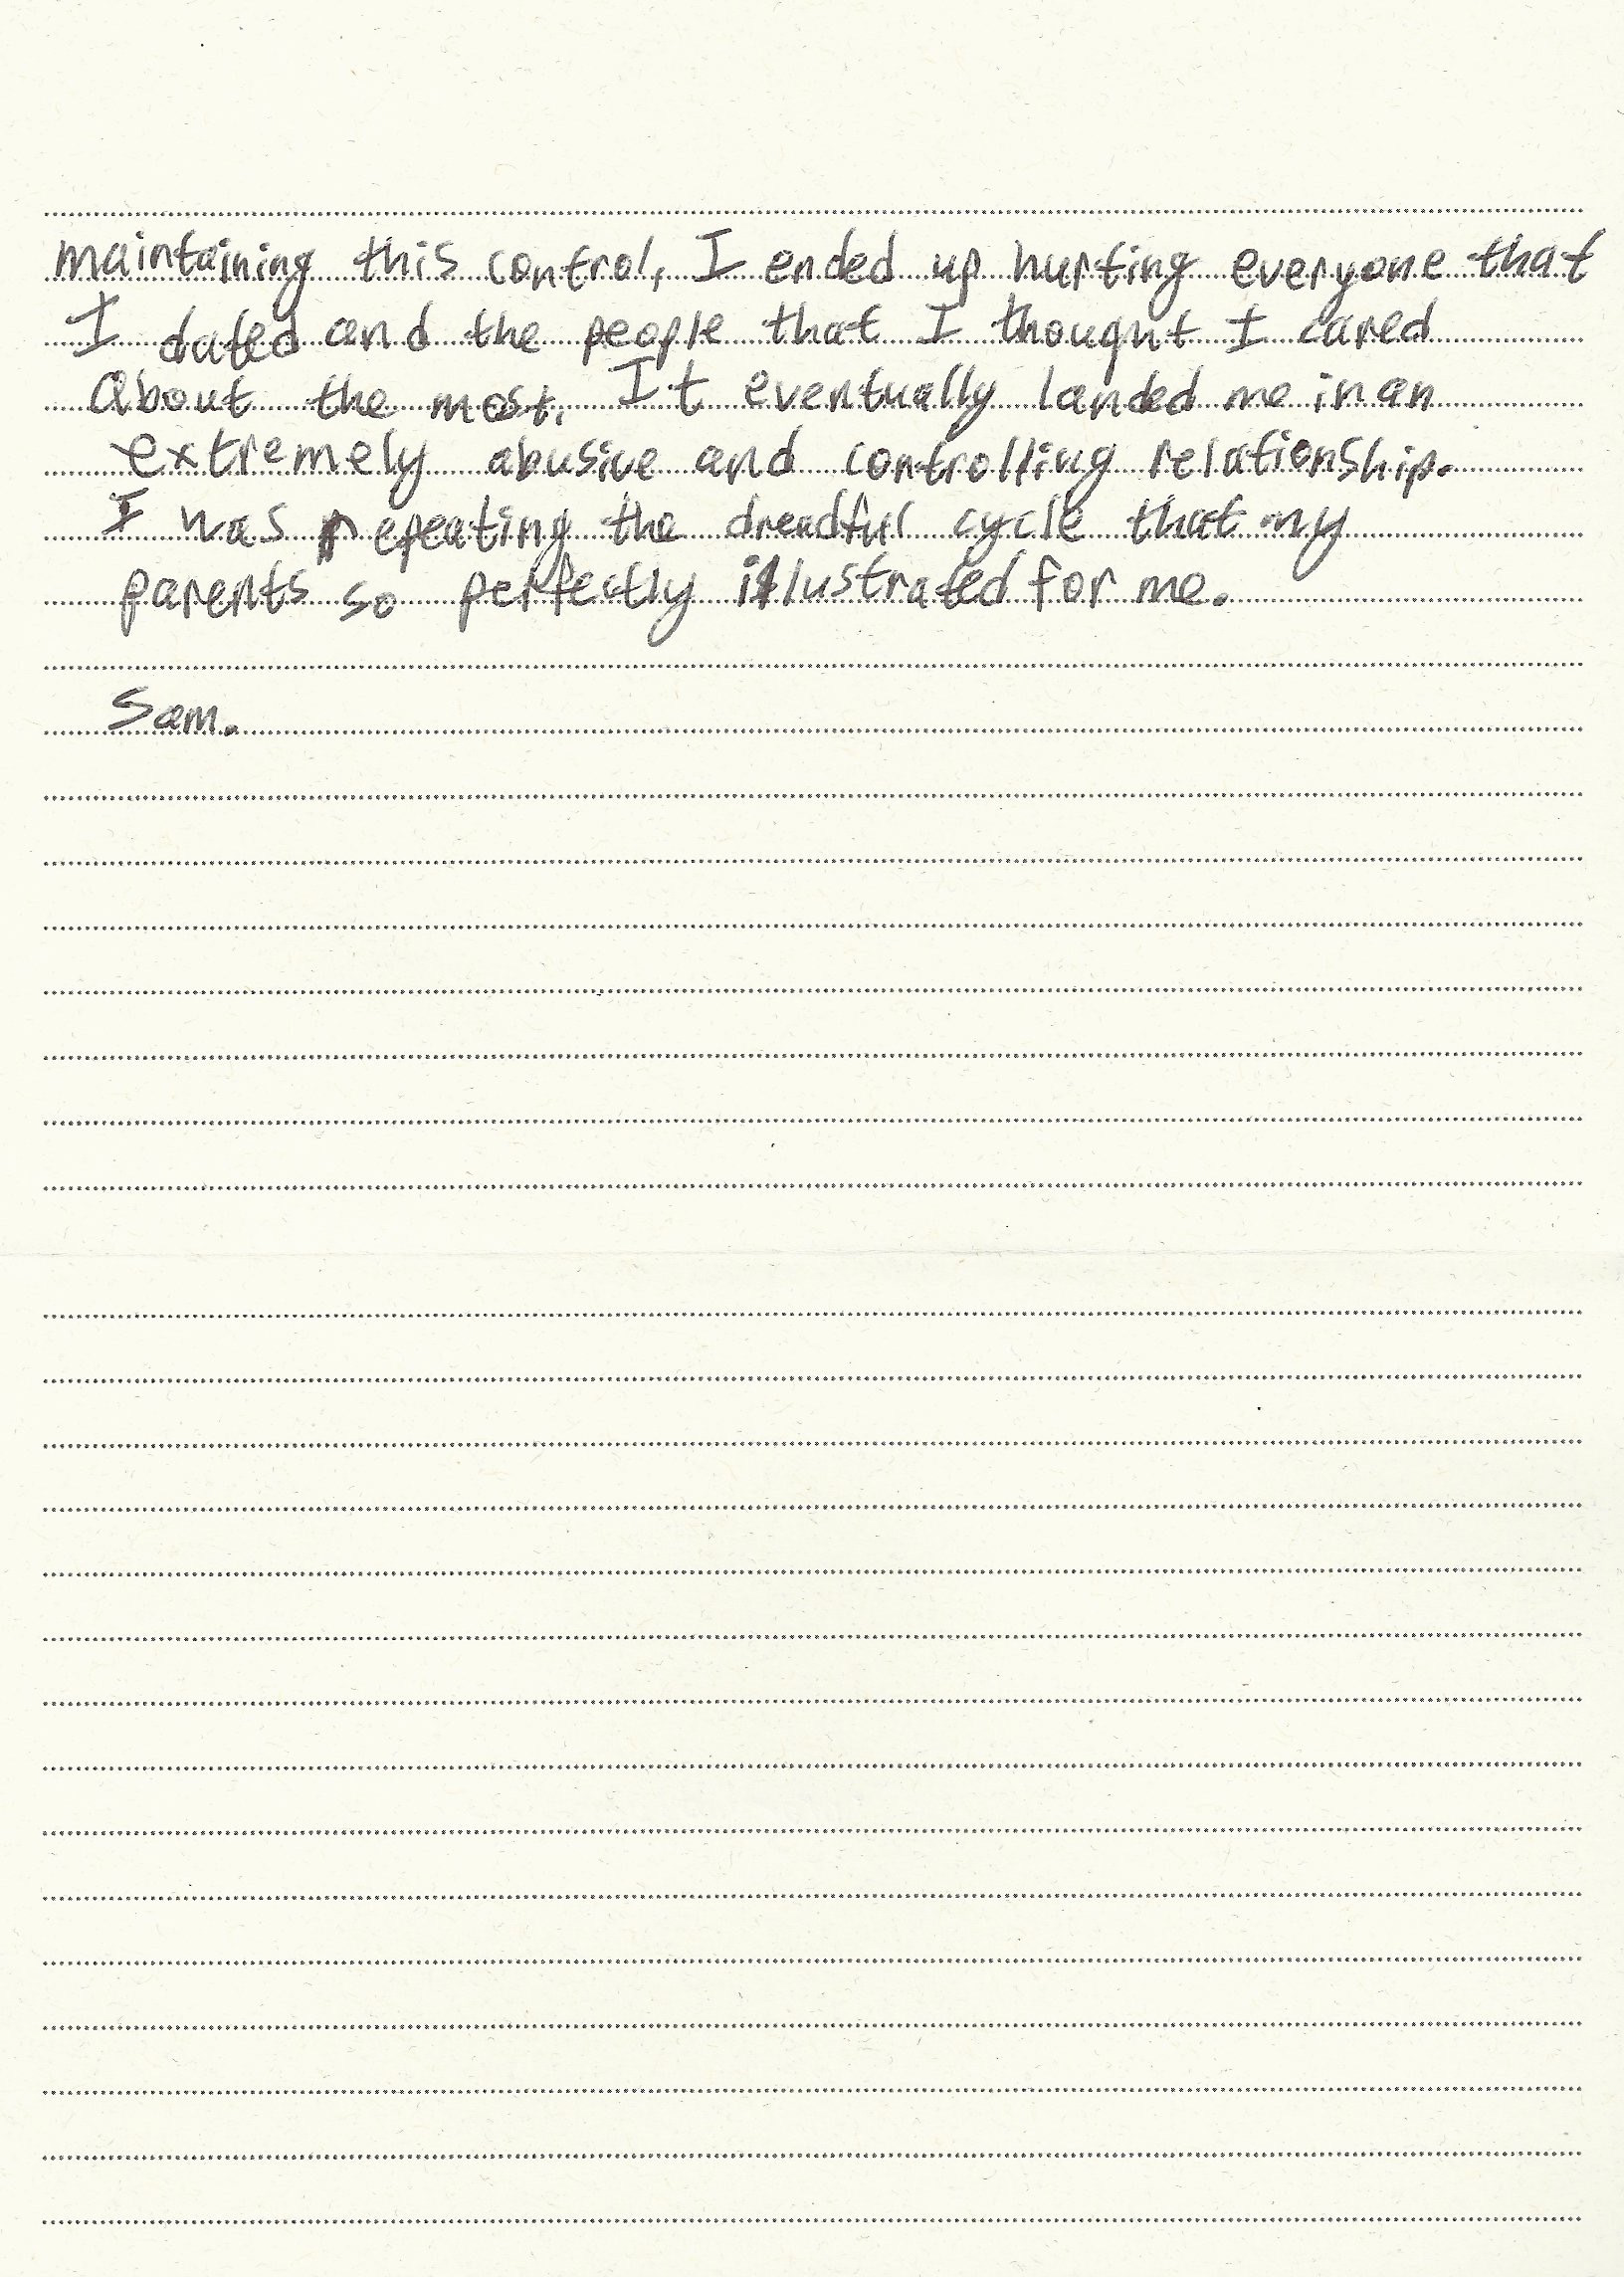 maintaining this control, I ended up hurting everyone that
I dated and the people that I thought I cared
about the most. It eventually landed me in an
extremely abusive and controlling relationship.
I was repeating the dreadful cycle that my
parents so perfectly illustrated for me.
Sam.